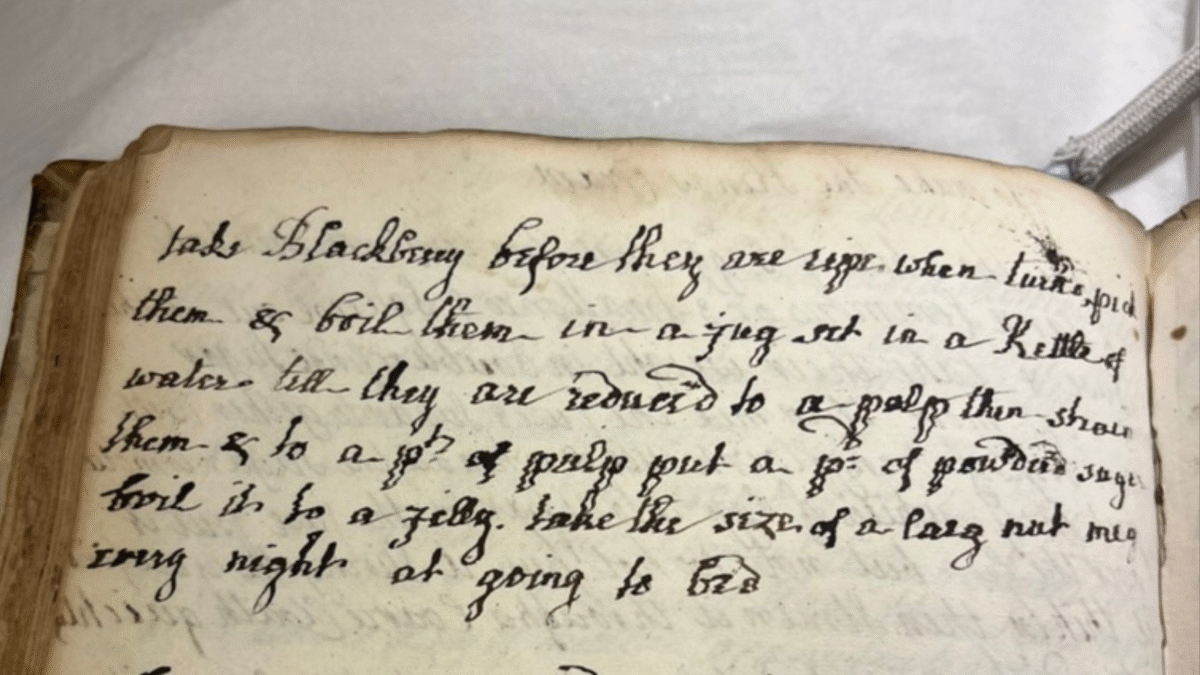 take Blackberry before they are ripe when turn'd pick
them & boil them in a jug set in a Kettle of
water tell they are reduced to a pulp then strain
them & to a pt of pulp put a pd of powder'd sugar
boil it to a jelly. take the size of a larg nut meg
every night at going to bed